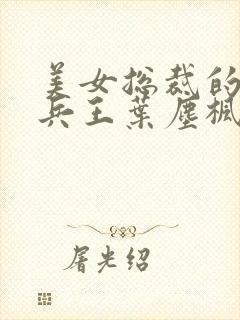 美女总裁的
兵王叶尘枫
屠光绍